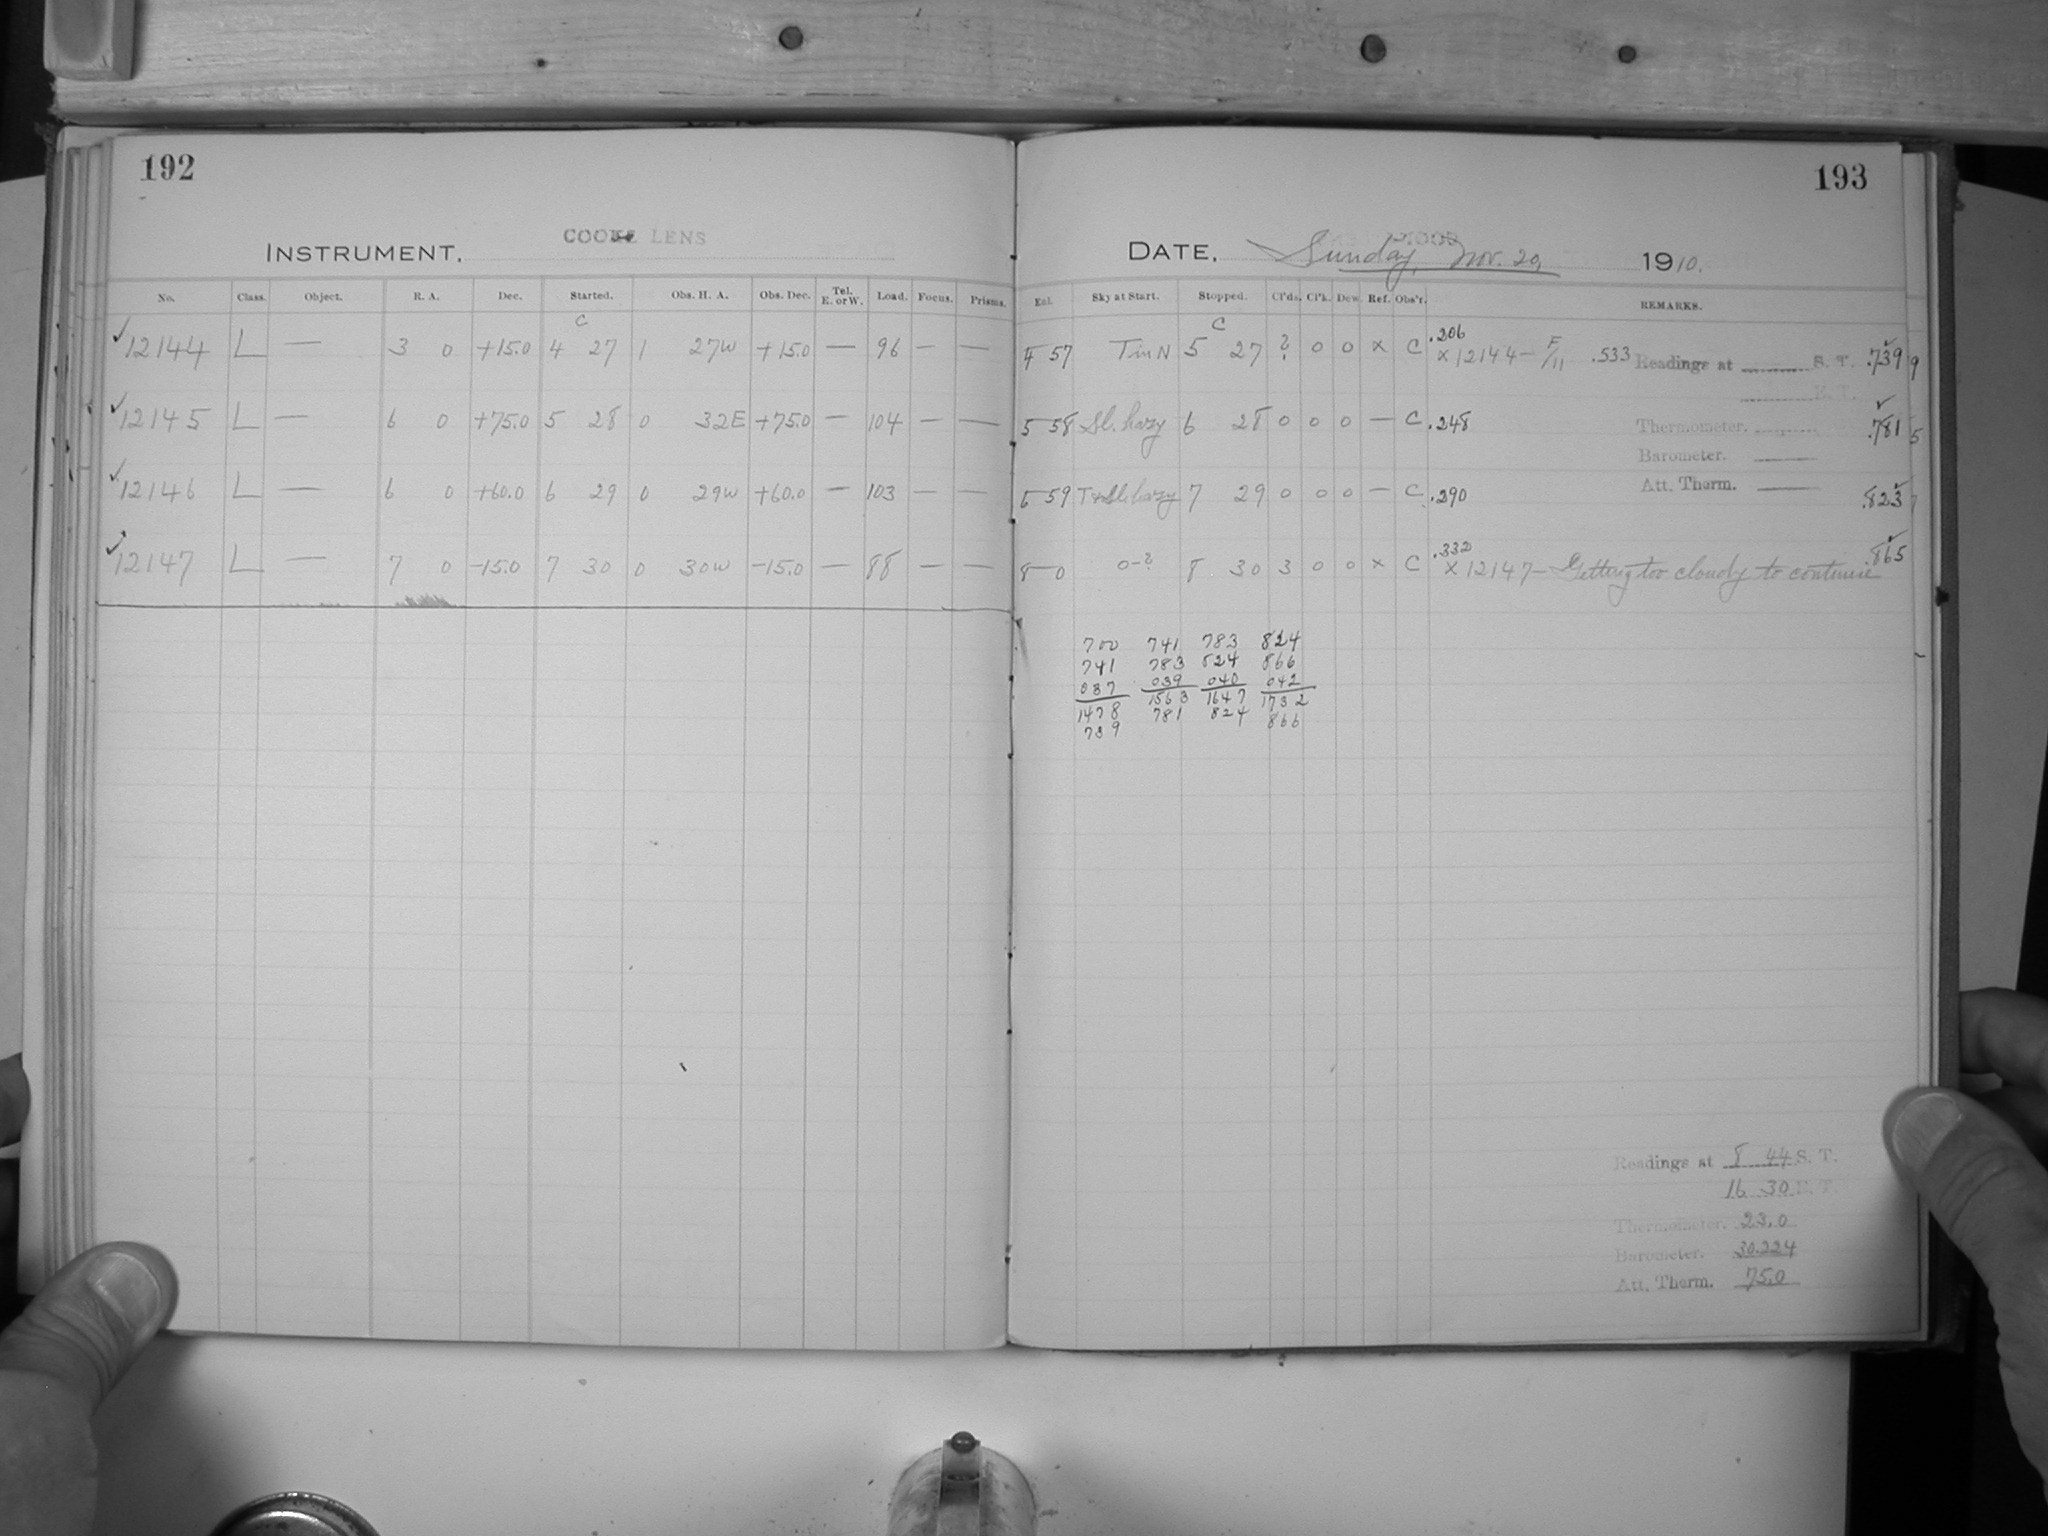 192
INSTRUMENT. COOKE LENS
No. Class. Object. R. A. Dec. Started. Obs. H. A. Obs. Dec. Tel. E. or W. Load. Focus. Prisms.
C
✓12144 L — 3 0 +15.0 4 27 1 27W +15.0 — 96 — —
✓12145 L — 6 0 +75.0 5 28 0 32E +75.0 — 104 — —
✓12146 L — 6 0 +60.0 6 29 0 29W +60.0 — 103 — —
✓12147 L — 7 0 -15.0 7 30 0 30W -15.0 — 88 — —
193
DATE. Sunday, Nov. 20, 1910.
Exl. Sky at Start. Stopped. Cl'ds. Cl'k. Dew. Ref. Obs'r. REMARKS.
C
.206
4 57 T in N 5 27 ? 0 0 x C x 12144 — F/11 .533 Readings at S. T. .739
5 58 Sl. hazy 6 28 0 0 0 — C .248 Thermometer. .781
Barometer.
6 59 T + sl. hazy 7 29 0 0 0 — C .290 Att. Therm. .823
.332
8 0 0-? 8 30 3 0 0 x C x 12147 — Getting too cloudy to continue .865
700 741 783 824
741 783 824 866
037 039 040 042
1478 1563 1647 1732
739 781 824 866
Readings at 8 44 S. T.
16 30 E. T.
Thermometer. 23.0
Barometer. 30.224
Att. Therm. 75.0